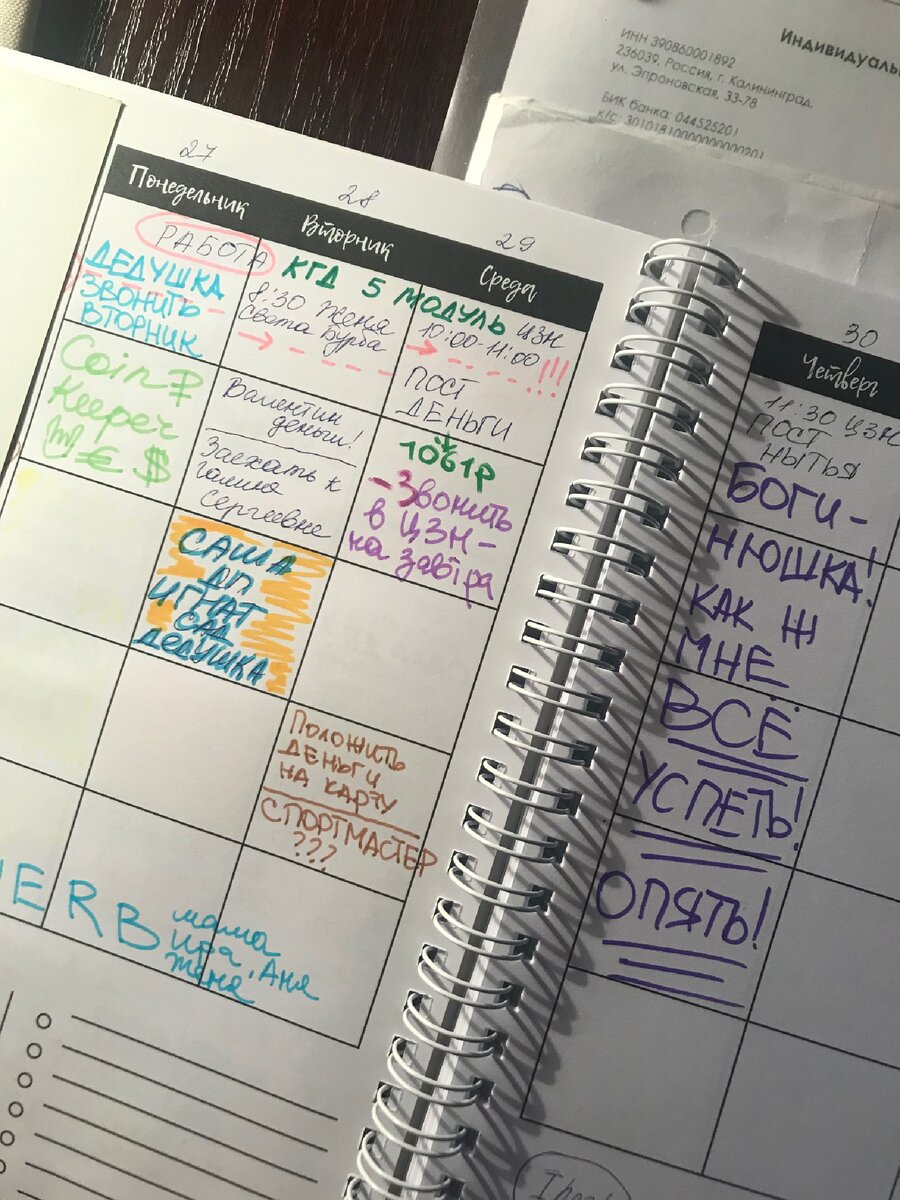 Индивидуаль
ИНН 390860001892
236039, Россия, г. Калининград,
ул. Эпроновская, 33-78
БИК банка: 044525201
к/с: 30101810000000000201
27
Понедельник
РАБОТА
ДЕДУШКА
ЗВОНИТЬ
ВТОРНИК
Coin ₽
Keeper
€ $
28
Вторник
КГД 5 МОДУЛЬ
8:30 Женя
Света Бурба
Валентин
деньги!
Заехать к
Галине
Сергеевне
САША
ДП
ИГНАТ
САД
ДЕДУШКА
29
Среда
ЦЗН
10:00-11:00
!!!
ПОСТ
ДЕНЬГИ
1061р
-Звонить
в ЦЗН-
на завтра
ПОЛОЖИТЬ
ДЕНЬГИ
НА КАРТУ
СПОРТМАСТЕР
???
ERB
мама
Ира, Аня
Женя
30
Четверг
11:30 ЦЗН
ПОСТ
НЫТЬЯ
БОГИ-
НЮШКА!
КАК Ж
МНЕ
ВСЁ
УСПЕТЬ!
ОПЯТЬ!